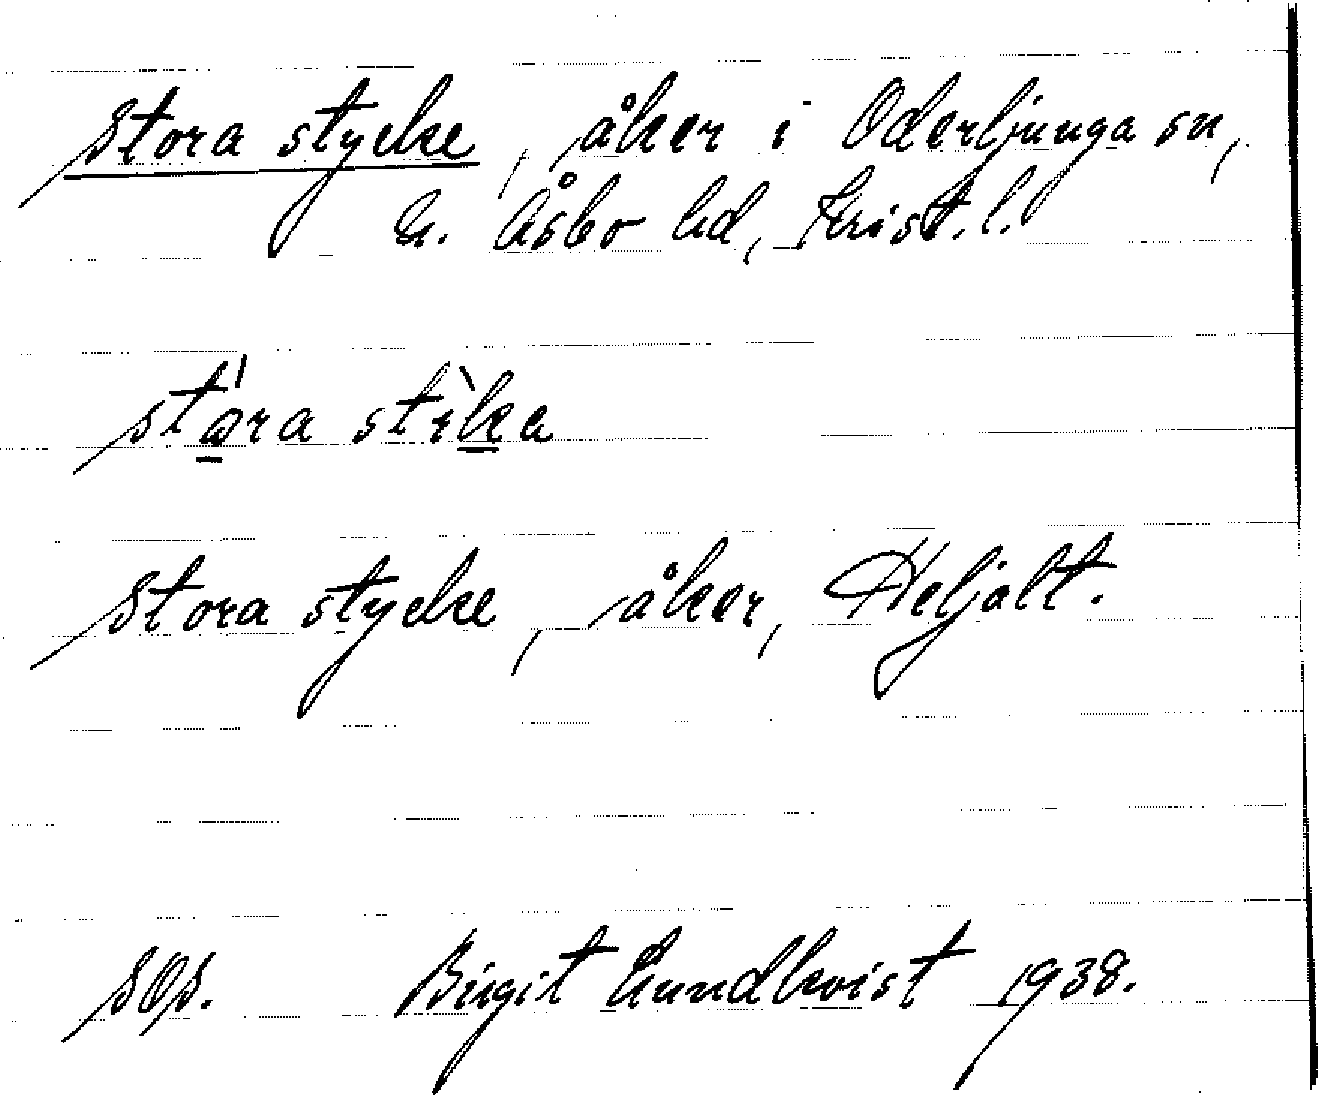 Stora stycke, åker i Oderljunga sn,
N. Åsbo hd, Krist. l.
stǫ́ra stìka
Stora stycke, åker, Heljalt.
SOS. Birgit Lundkvist 1938.